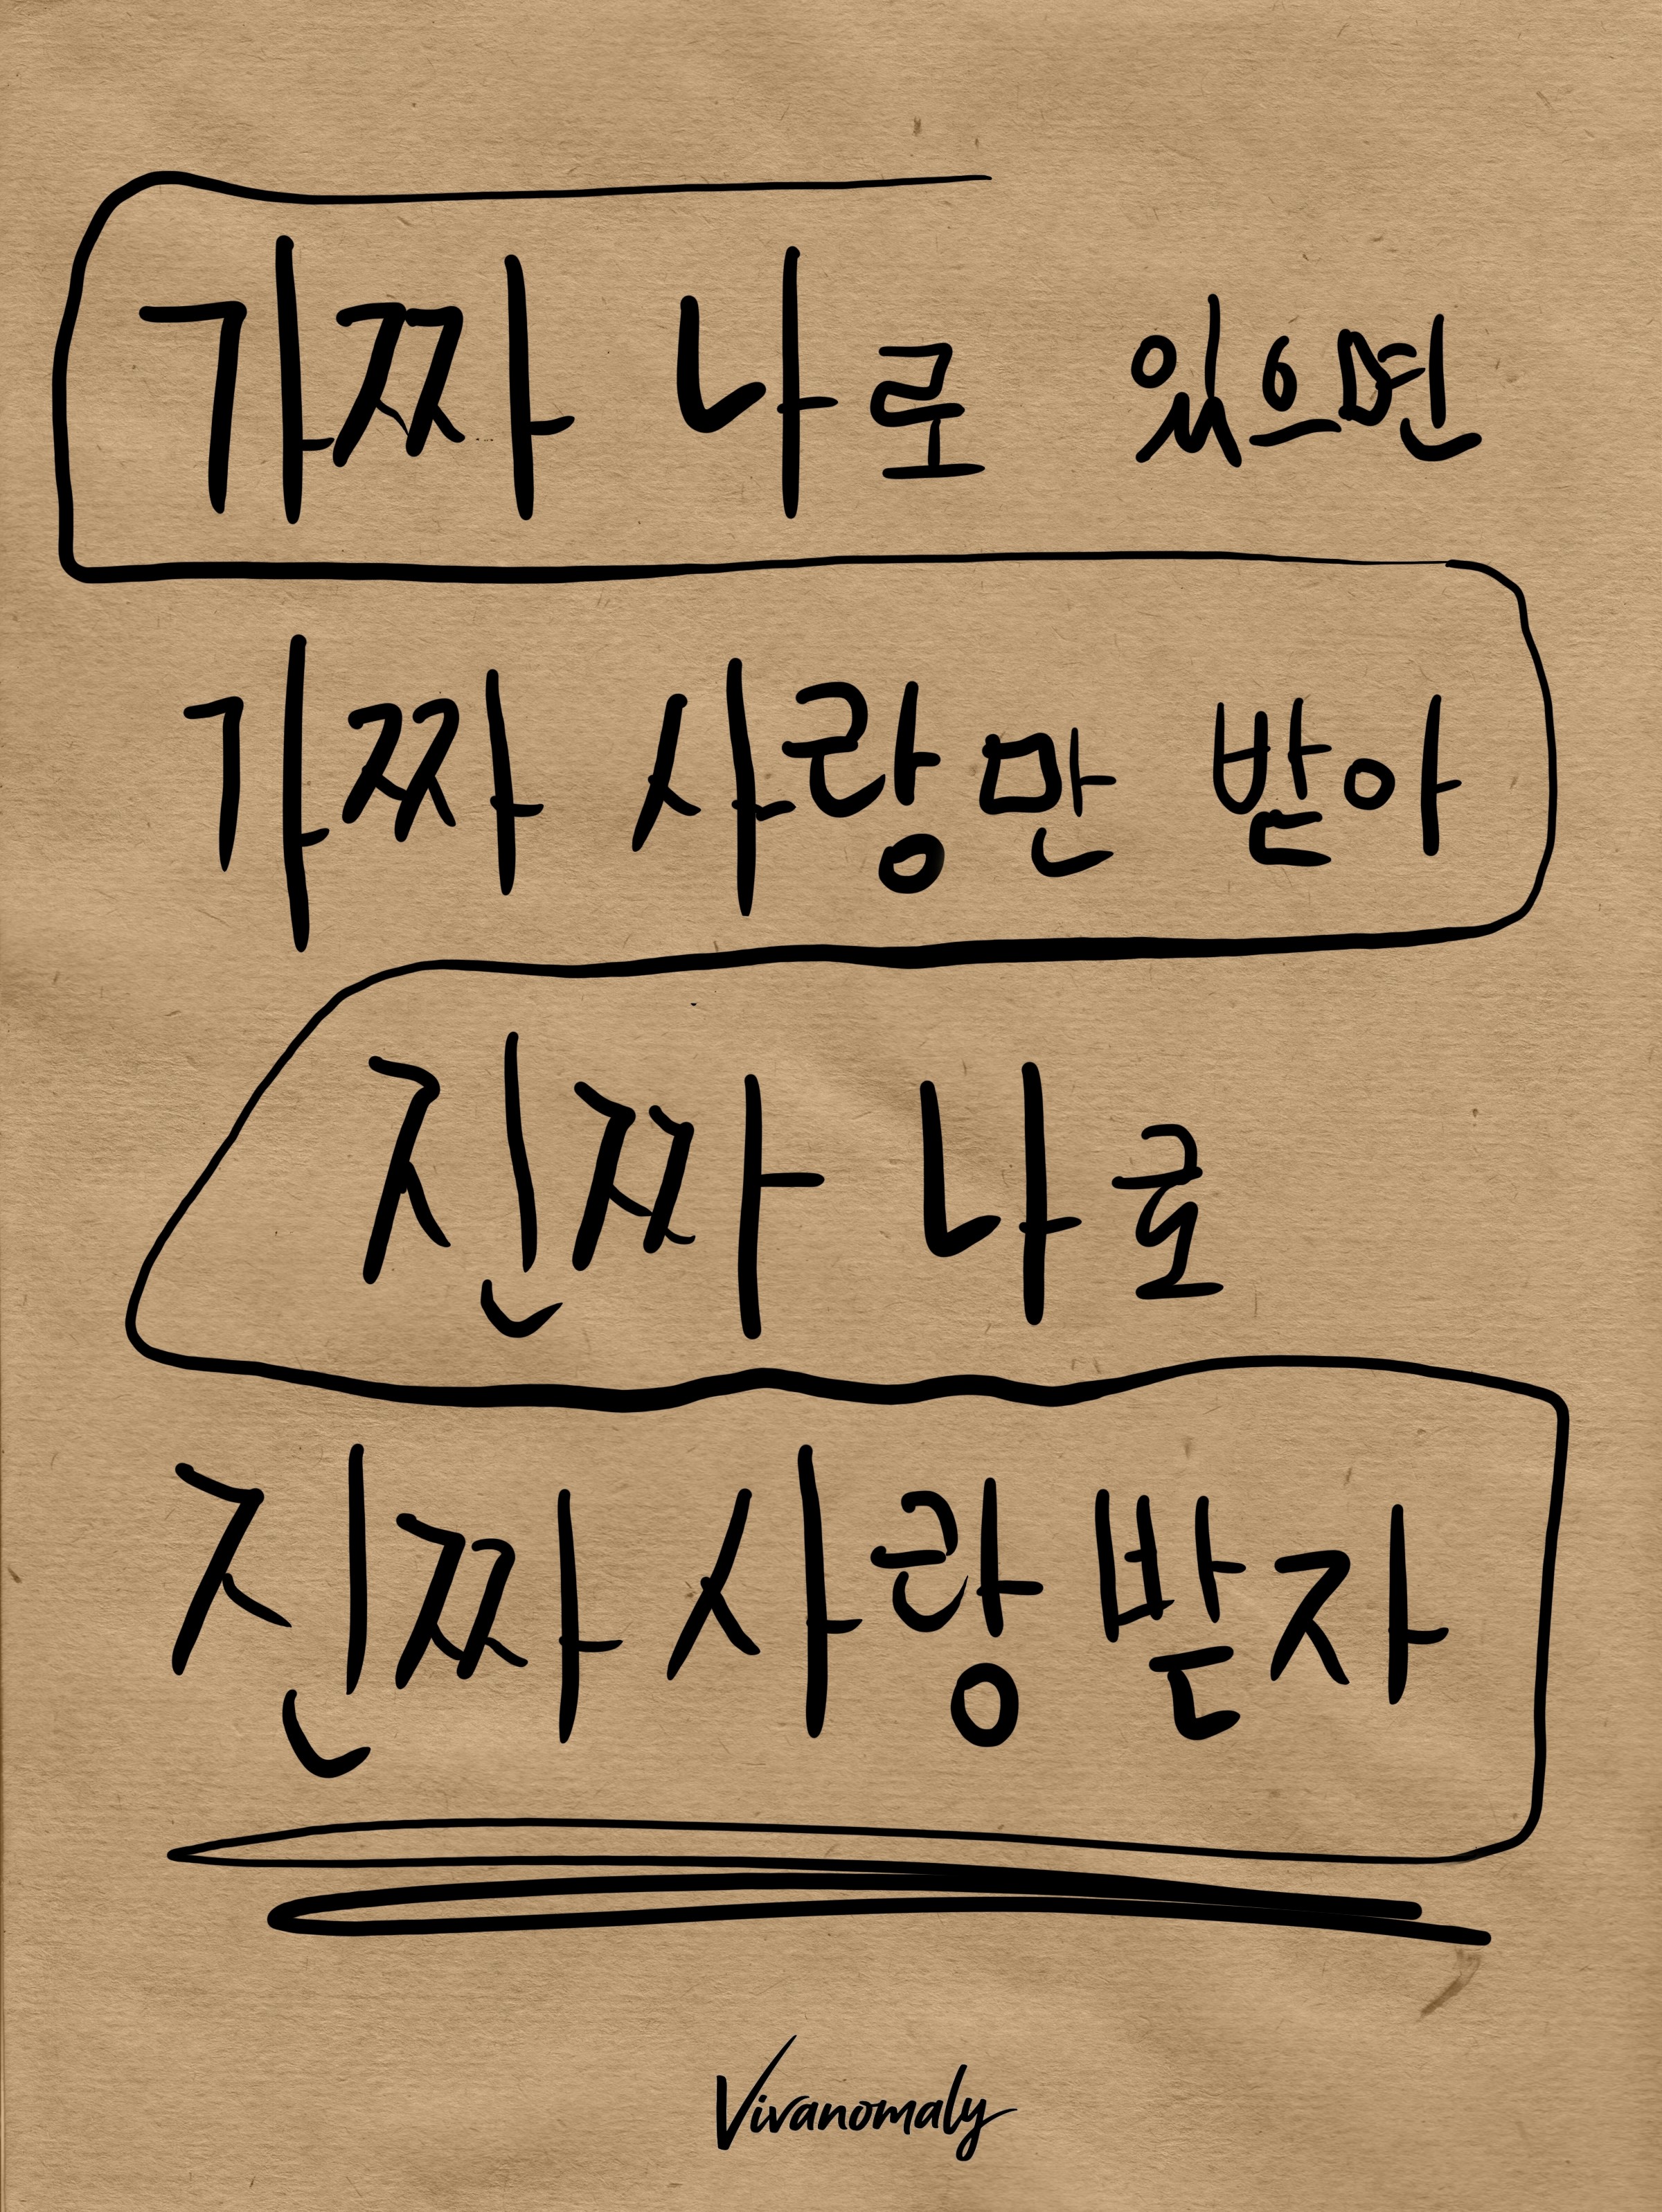 가짜 나로 있으면
가짜 사랑만 받아
진짜 나로
진짜 사랑 받자
Vivanomaly